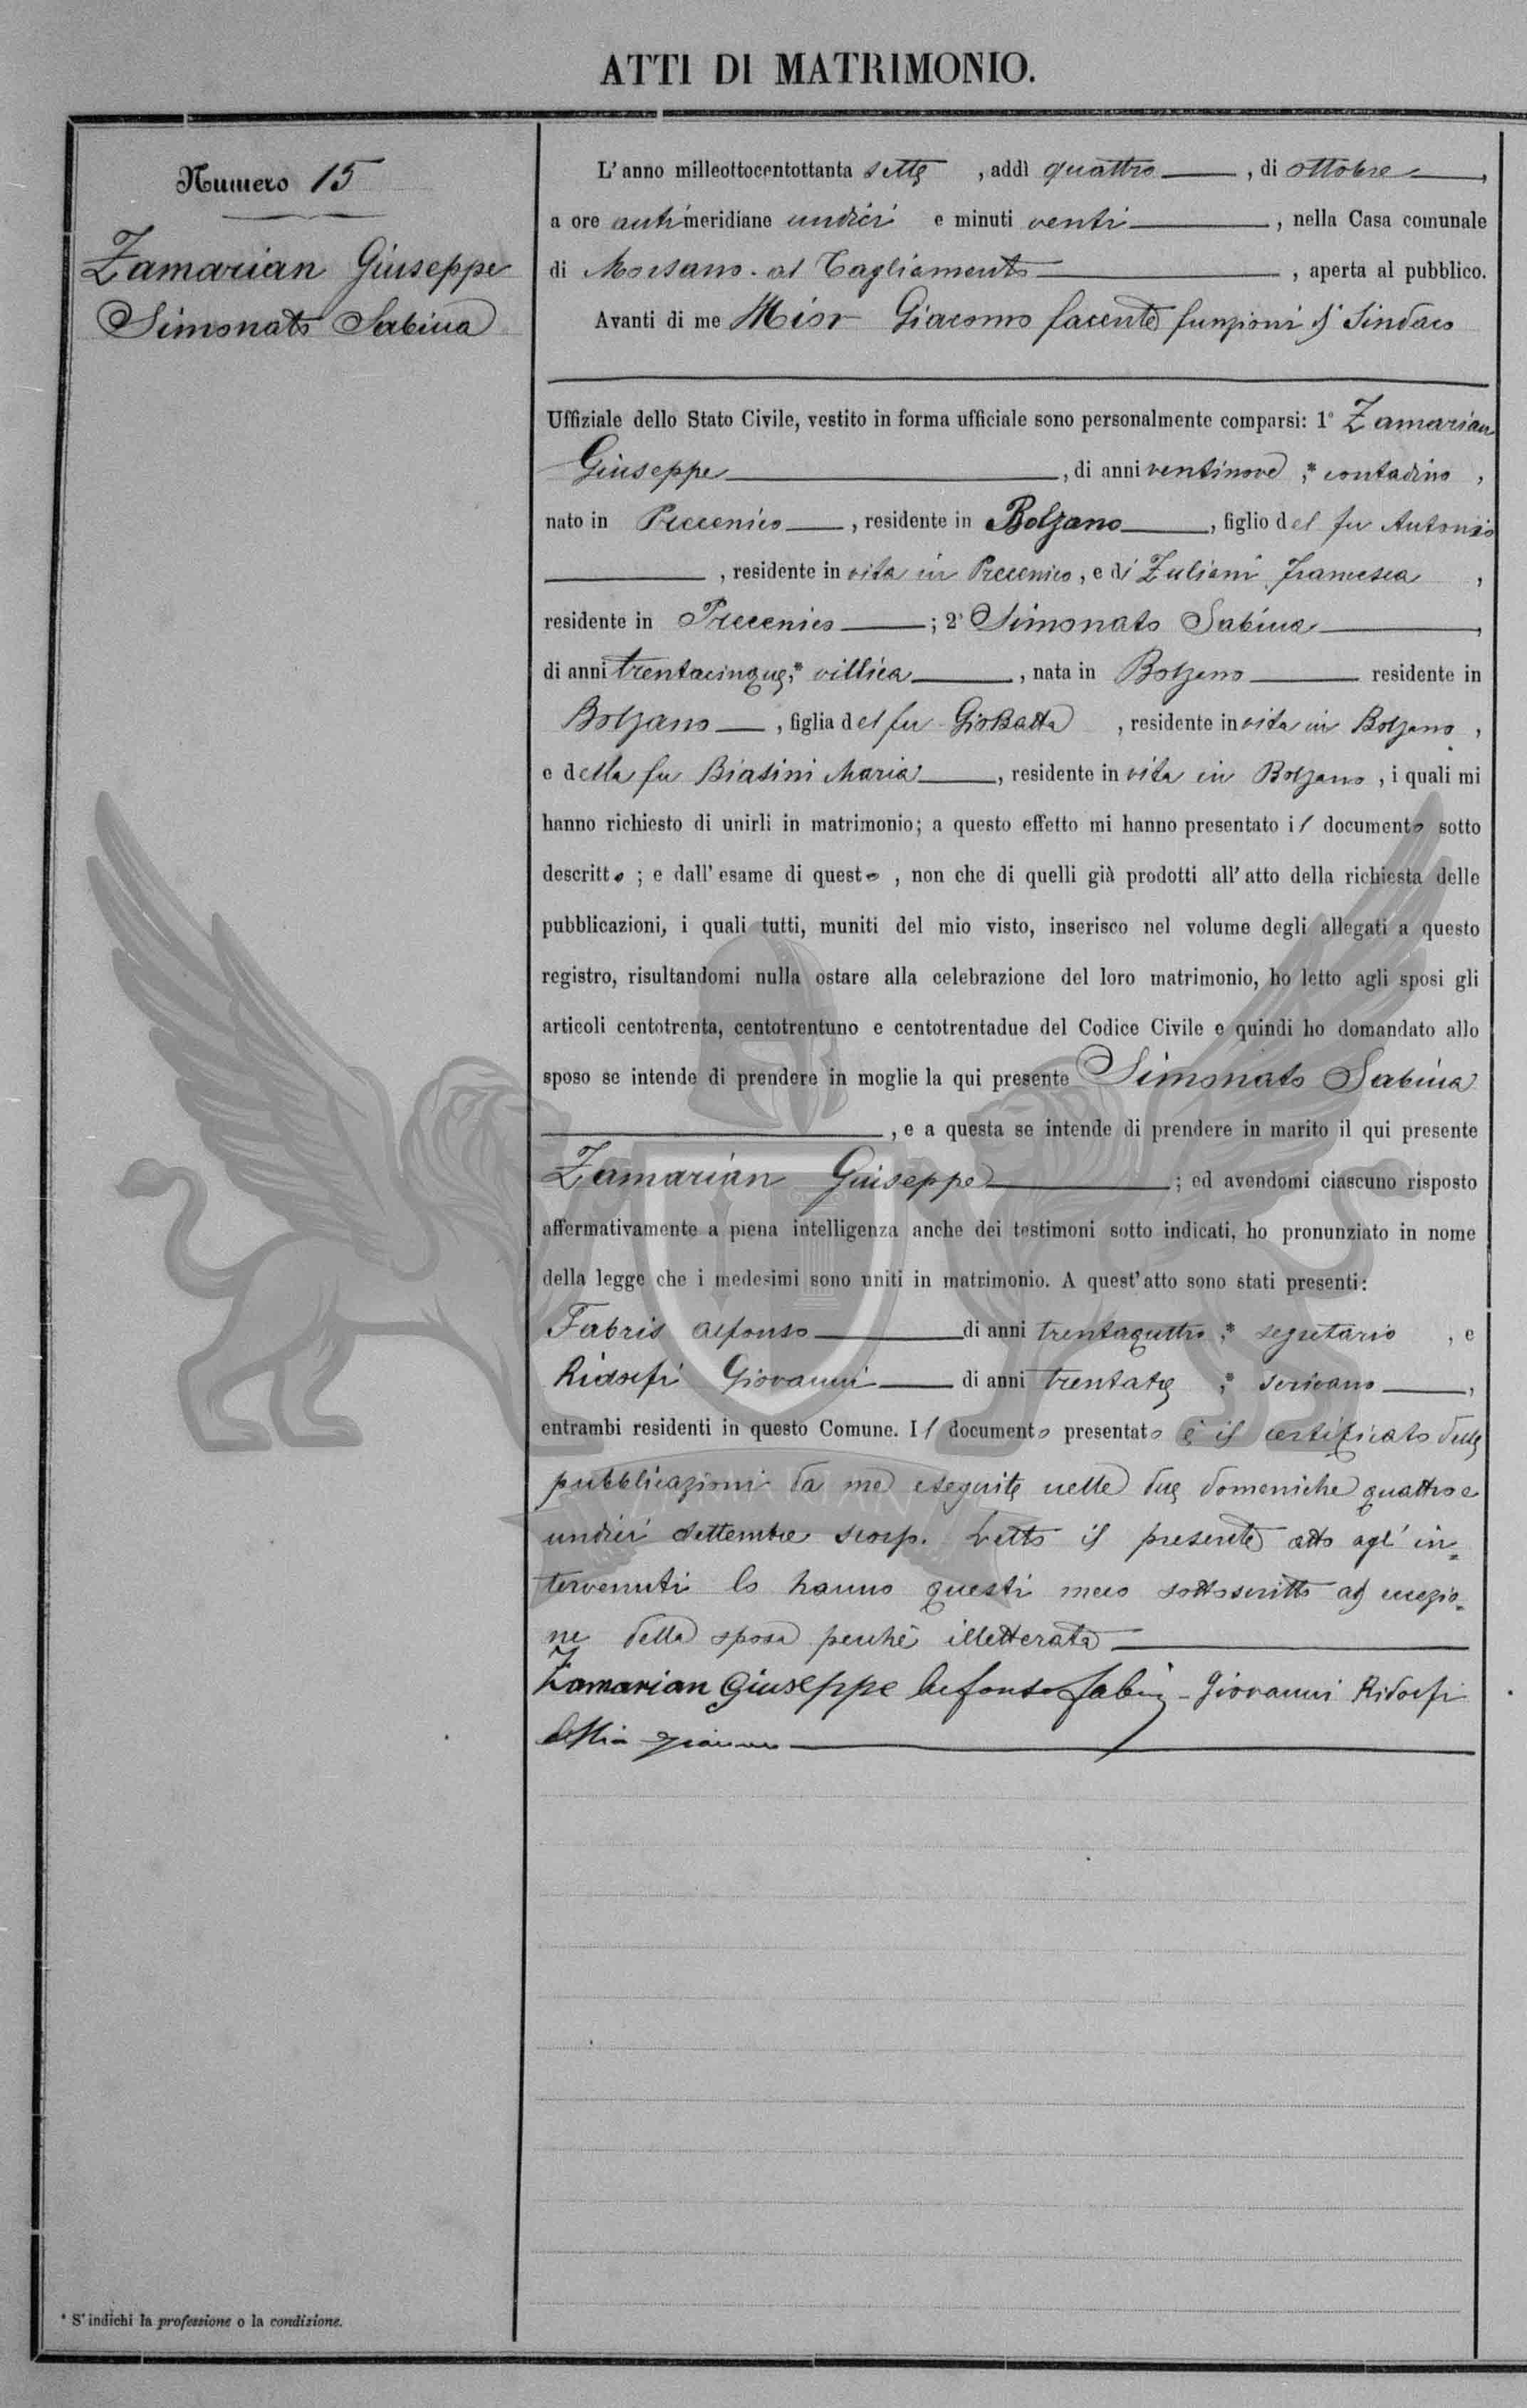 ATTI DI MATRIMONIO.
Numero 15
Zamarian Giuseppe
Simonato Sabina
L'anno milleottocentottanta sette, addì quattro, di ottobre,
a ore antimeridiane undici e minuti venti, nella Casa comunale
di Morsano al Tagliamento, aperta al pubblico.
Avanti di me Mior Giacomo facente funzioni di Sindaco
Uffiziale dello Stato Civile, vestito in forma ufficiale sono personalmente comparsi: 1° Zamarian
Giuseppe, di anni ventinove,* contadino,
nato in Precenico, residente in Bolzano, figlio del fu Antonio
, residente in vita in Precenico, e di Zuliani Francesca,
residente in Precenico; 2° Simonato Sabina,
di anni trentacinque,* villica, nata in Bolzano residente in
Bolzano, figlia del fu GioBatta, residente in vita in Bolzano,
e della fu Biasini Maria, residente in vita in Bolzano, i quali mi
hanno richiesto di unirli in matrimonio; a questo effetto mi hanno presentato il documento sotto
descritto; e dall'esame di questo, non che di quelli già prodotti all'atto della richiesta delle
pubblicazioni, i quali tutti, muniti del mio visto, inserisco nel volume degli allegati a questo
registro, risultandomi nulla ostare alla celebrazione del loro matrimonio, ho letto agli sposi gli
articoli centotrenta, centotrentuno e centotrentadue del Codice Civile e quindi ho domandato allo
sposo se intende di prendere in moglie la qui presente Simonato Sabina
, e a questa se intende di prendere in marito il qui presente
Zamarian Giuseppe; ed avendomi ciascuno risposto
affermativamente a piena intelligenza anche dei testimoni sotto indicati, ho pronunziato in nome
della legge che i medesimi sono uniti in matrimonio. A quest'atto sono stati presenti:
Fabris Alfonso di anni trentaquttro,* segretario, e
Ridolfi Giovanni di anni trentatre,* scrivano,
entrambi residenti in questo Comune. Il documento presentato è il certificato delle
pubblicazioni da me eseguite nelle due domeniche quattro e
undici settembre scorp. Letto il presente atto agl'in=
tervenuti lo hanno questi meco sottoscritto ad eccezio=
ne della sposa perchè illetterata
Zamarian Giuseppe Alfonso Fabris - Giovanni Ridolfi
* S'indichi la professione o la condizione.